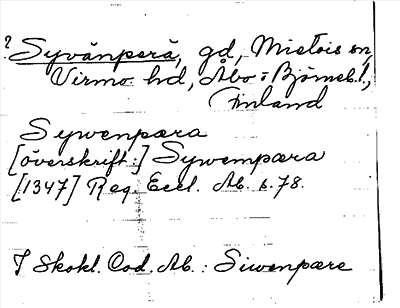 ? Syvänperä, gd, Mietois sn,
Virmo hd, Åbo o Björneb. l.,
Finland
Sywenpæra
[överskrift:] Sywempæra
[1347] Reg. Eccl. Ab. s. 78.
I Skokl. Cod. Ab.: Siwenpære